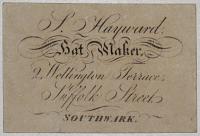 S. Hayward,
Hat Maker,
2, Wellington Terrace,
Suffolk Street
SOUTHWARK.